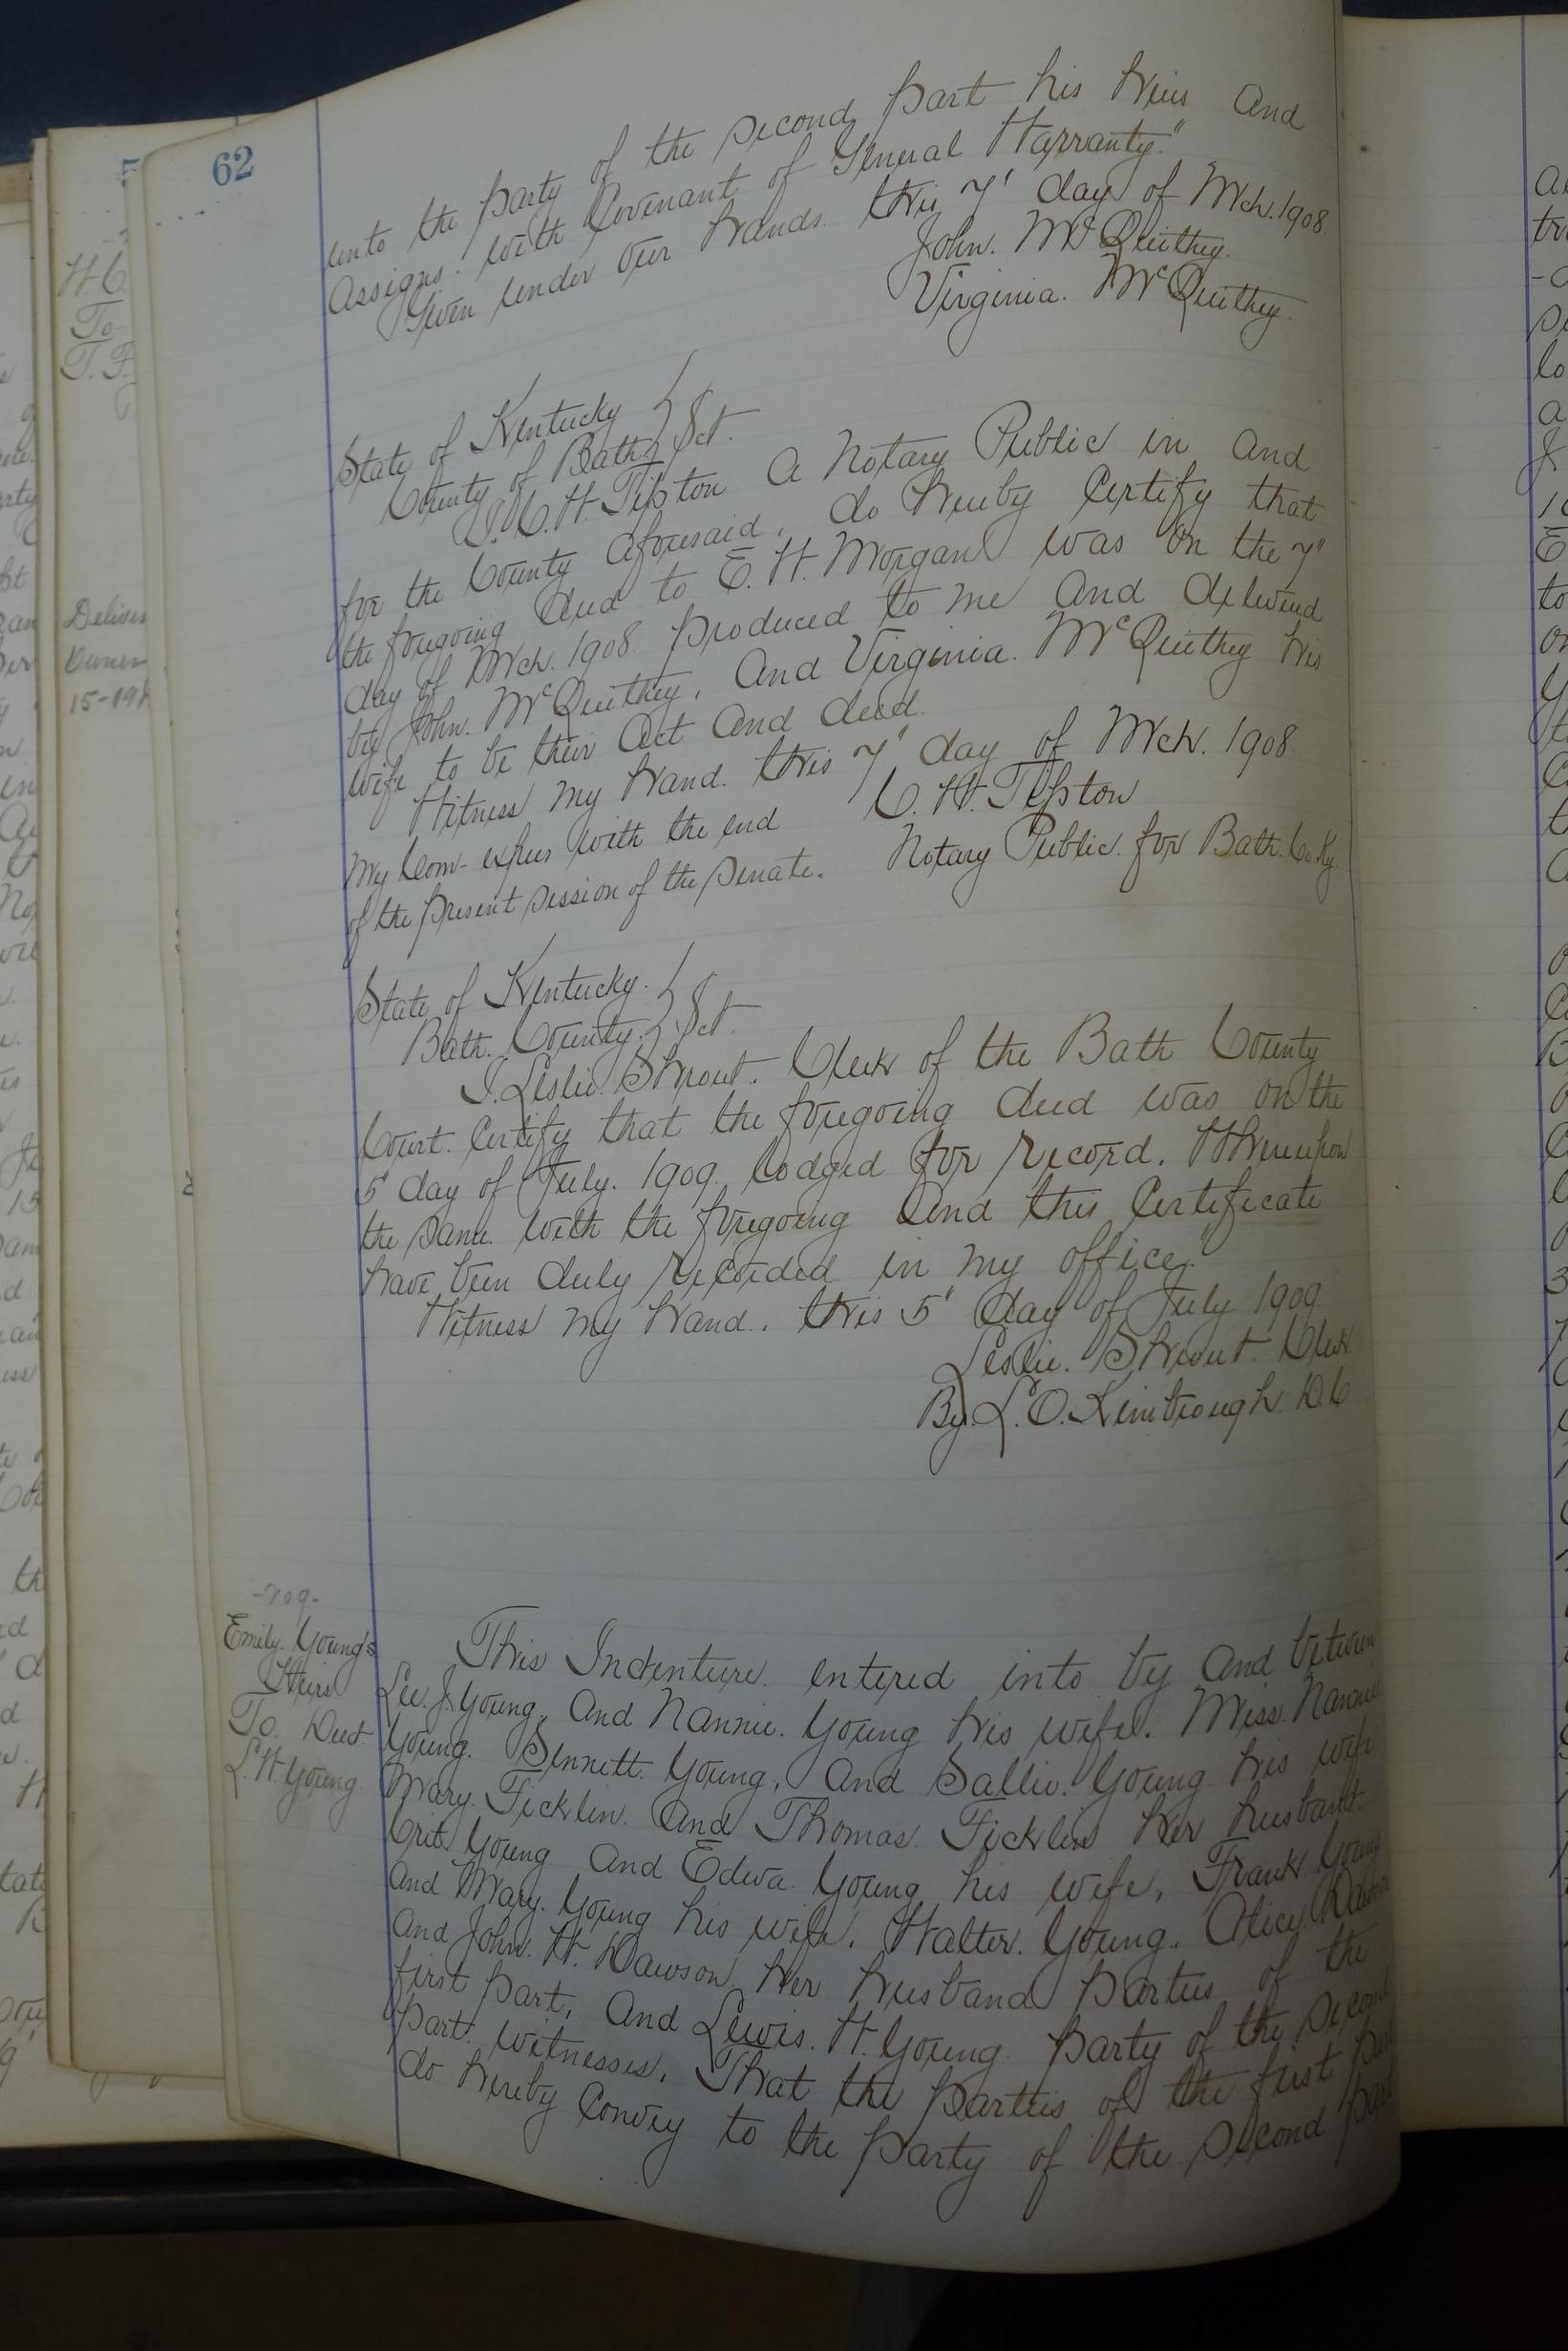 62
unto the party of the second part his heirs and
assigns. with Covenant of "General Warranty."
Given under our hands. this 7" day of Mch. 1908.
John. McQuithey.
Virginia. McQuithey.
State of Kentucky
County of Bath Sct.
I. C. W. Tipton a Notary Public in and
for the County aforesaid, do hereby Certify that
the foregoing deed to E. H. Morgan was on the 7"
day of Mch. 1908. produced to me and delivered
by John. McQuithey, and Virginia. McQuithey his
wife to be their act and deed.
Witness my hand. this 7" day of Mch. 1908
C. W. Tipton
My Com- expires with the end
Notary Public. for Bath. Co. Ky.
of the present session of the senate.
State of Kentucky.
Bath. County. Sct.
I. Leslie. Shrout. Clerk of the Bath County
Court. Certify that the foregoing deed was on the
5" day of July. 1909. lodged for record. Whereupon
the same. with the foregoing and this Certificate
have been duly recorded in my office."
Witness my hand. this 5" day of July 1909.
Leslie. Shrout. Clerk
By. L. O. Kimbrough. D.C
Emily. Young's
Heirs
To. Deed.
L. W. Young.
This Indenture. entered into by and between
Lee. J. Young. and Nannie. Young his wife. Miss. Nannie
Young. Bennett. Young, and Sallie. Young his wife
Mary. Ficklin. and Thomas. Ficklin her husband.
Crit. Young and Edwa. Young his wife, Frank Young
and Mary. Young his wife. Walter. Young. Alice. Dawson
and John. W. Dawson her husband parties of the
first part, and Lewis. W. Young party of the second
part. witnesses, That the parties of the first part
do hereby convey to the party of the second part
H. C.
To
T. F.
Deliver
Owner